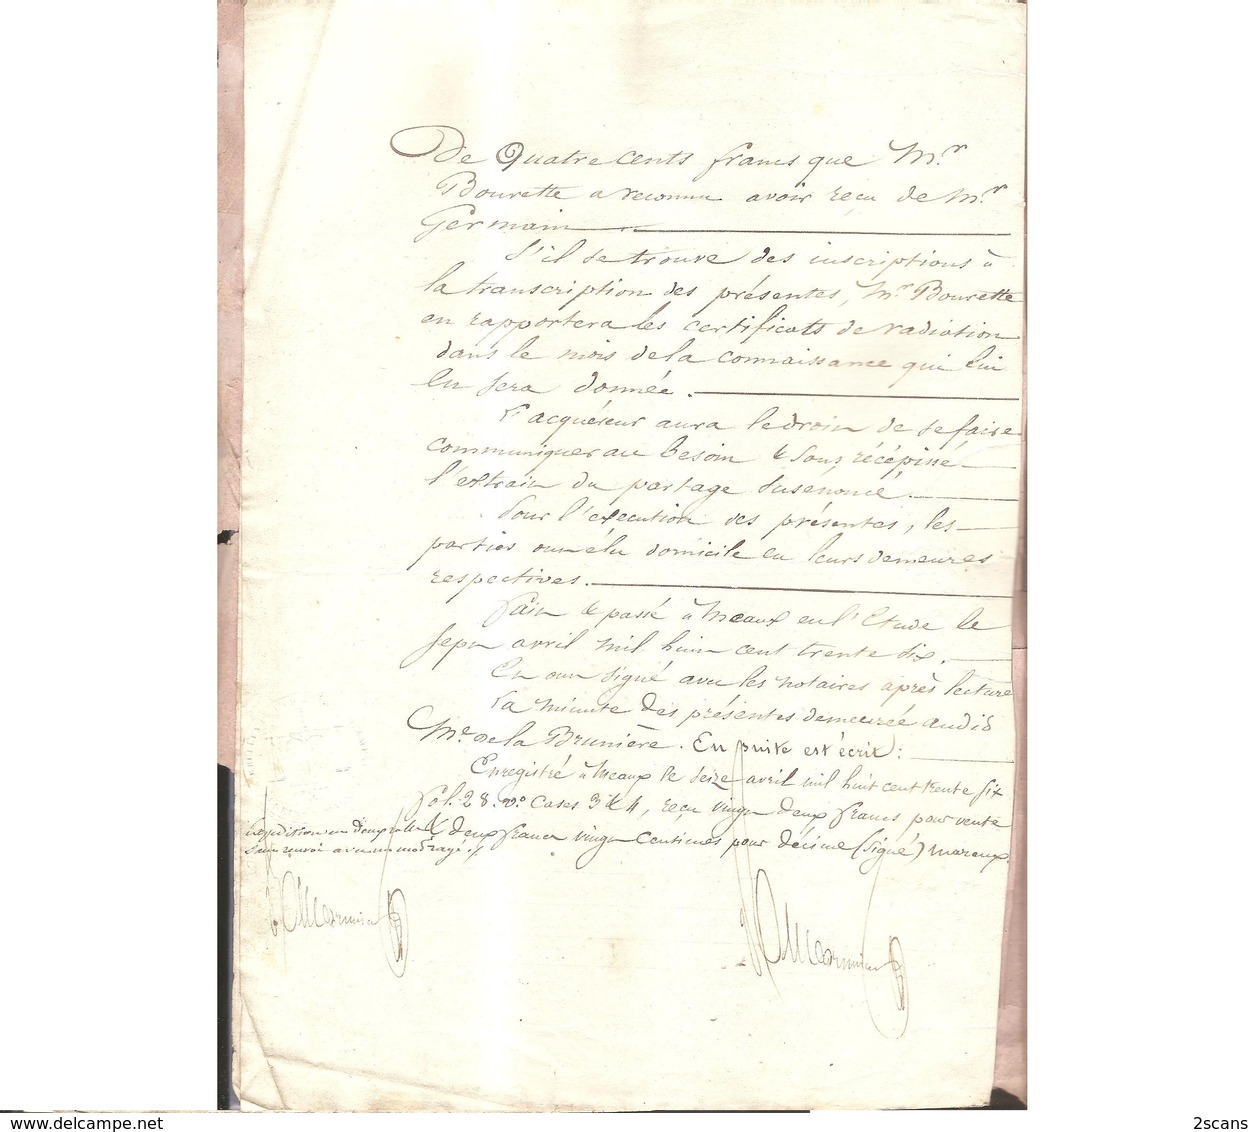 De Quatre cents francs que M.r
Bourette a reconnu avoir reçu de M.r
Germain
S'il se trouve des inscriptions à
la transcription des présentes, M.r Bourette
en rapportera les certificats de radiation
dans le mois de la connaissance qui lui
en sera donnée.
L'acquéreur aura le droit de se faire
communiquer au besoin & sous récépissé
l'extrait du partage susénoncé.
Pour l'exécution des présentes, les
parties ont élu domicile en leurs demeures
respectives.
Fait & passé à Meaux en l'Etude le
sept avril mil huit cent trente six.
Et ont signé avec les notaires après lecture
La minute des présentes demeurée audit
Me. de la Brunière. En suite est écrit:
Enregistré à Meaux le seize avril mil huit cent trente six
fol. 28. vo. Cases 3 & 4, reçu vingt deux francs pour vente
& deux francs vingt centimes pour décime (signé) Mareux.
expédition en deux rolles
sans renvoi avec un mot rayé ./.
2scans